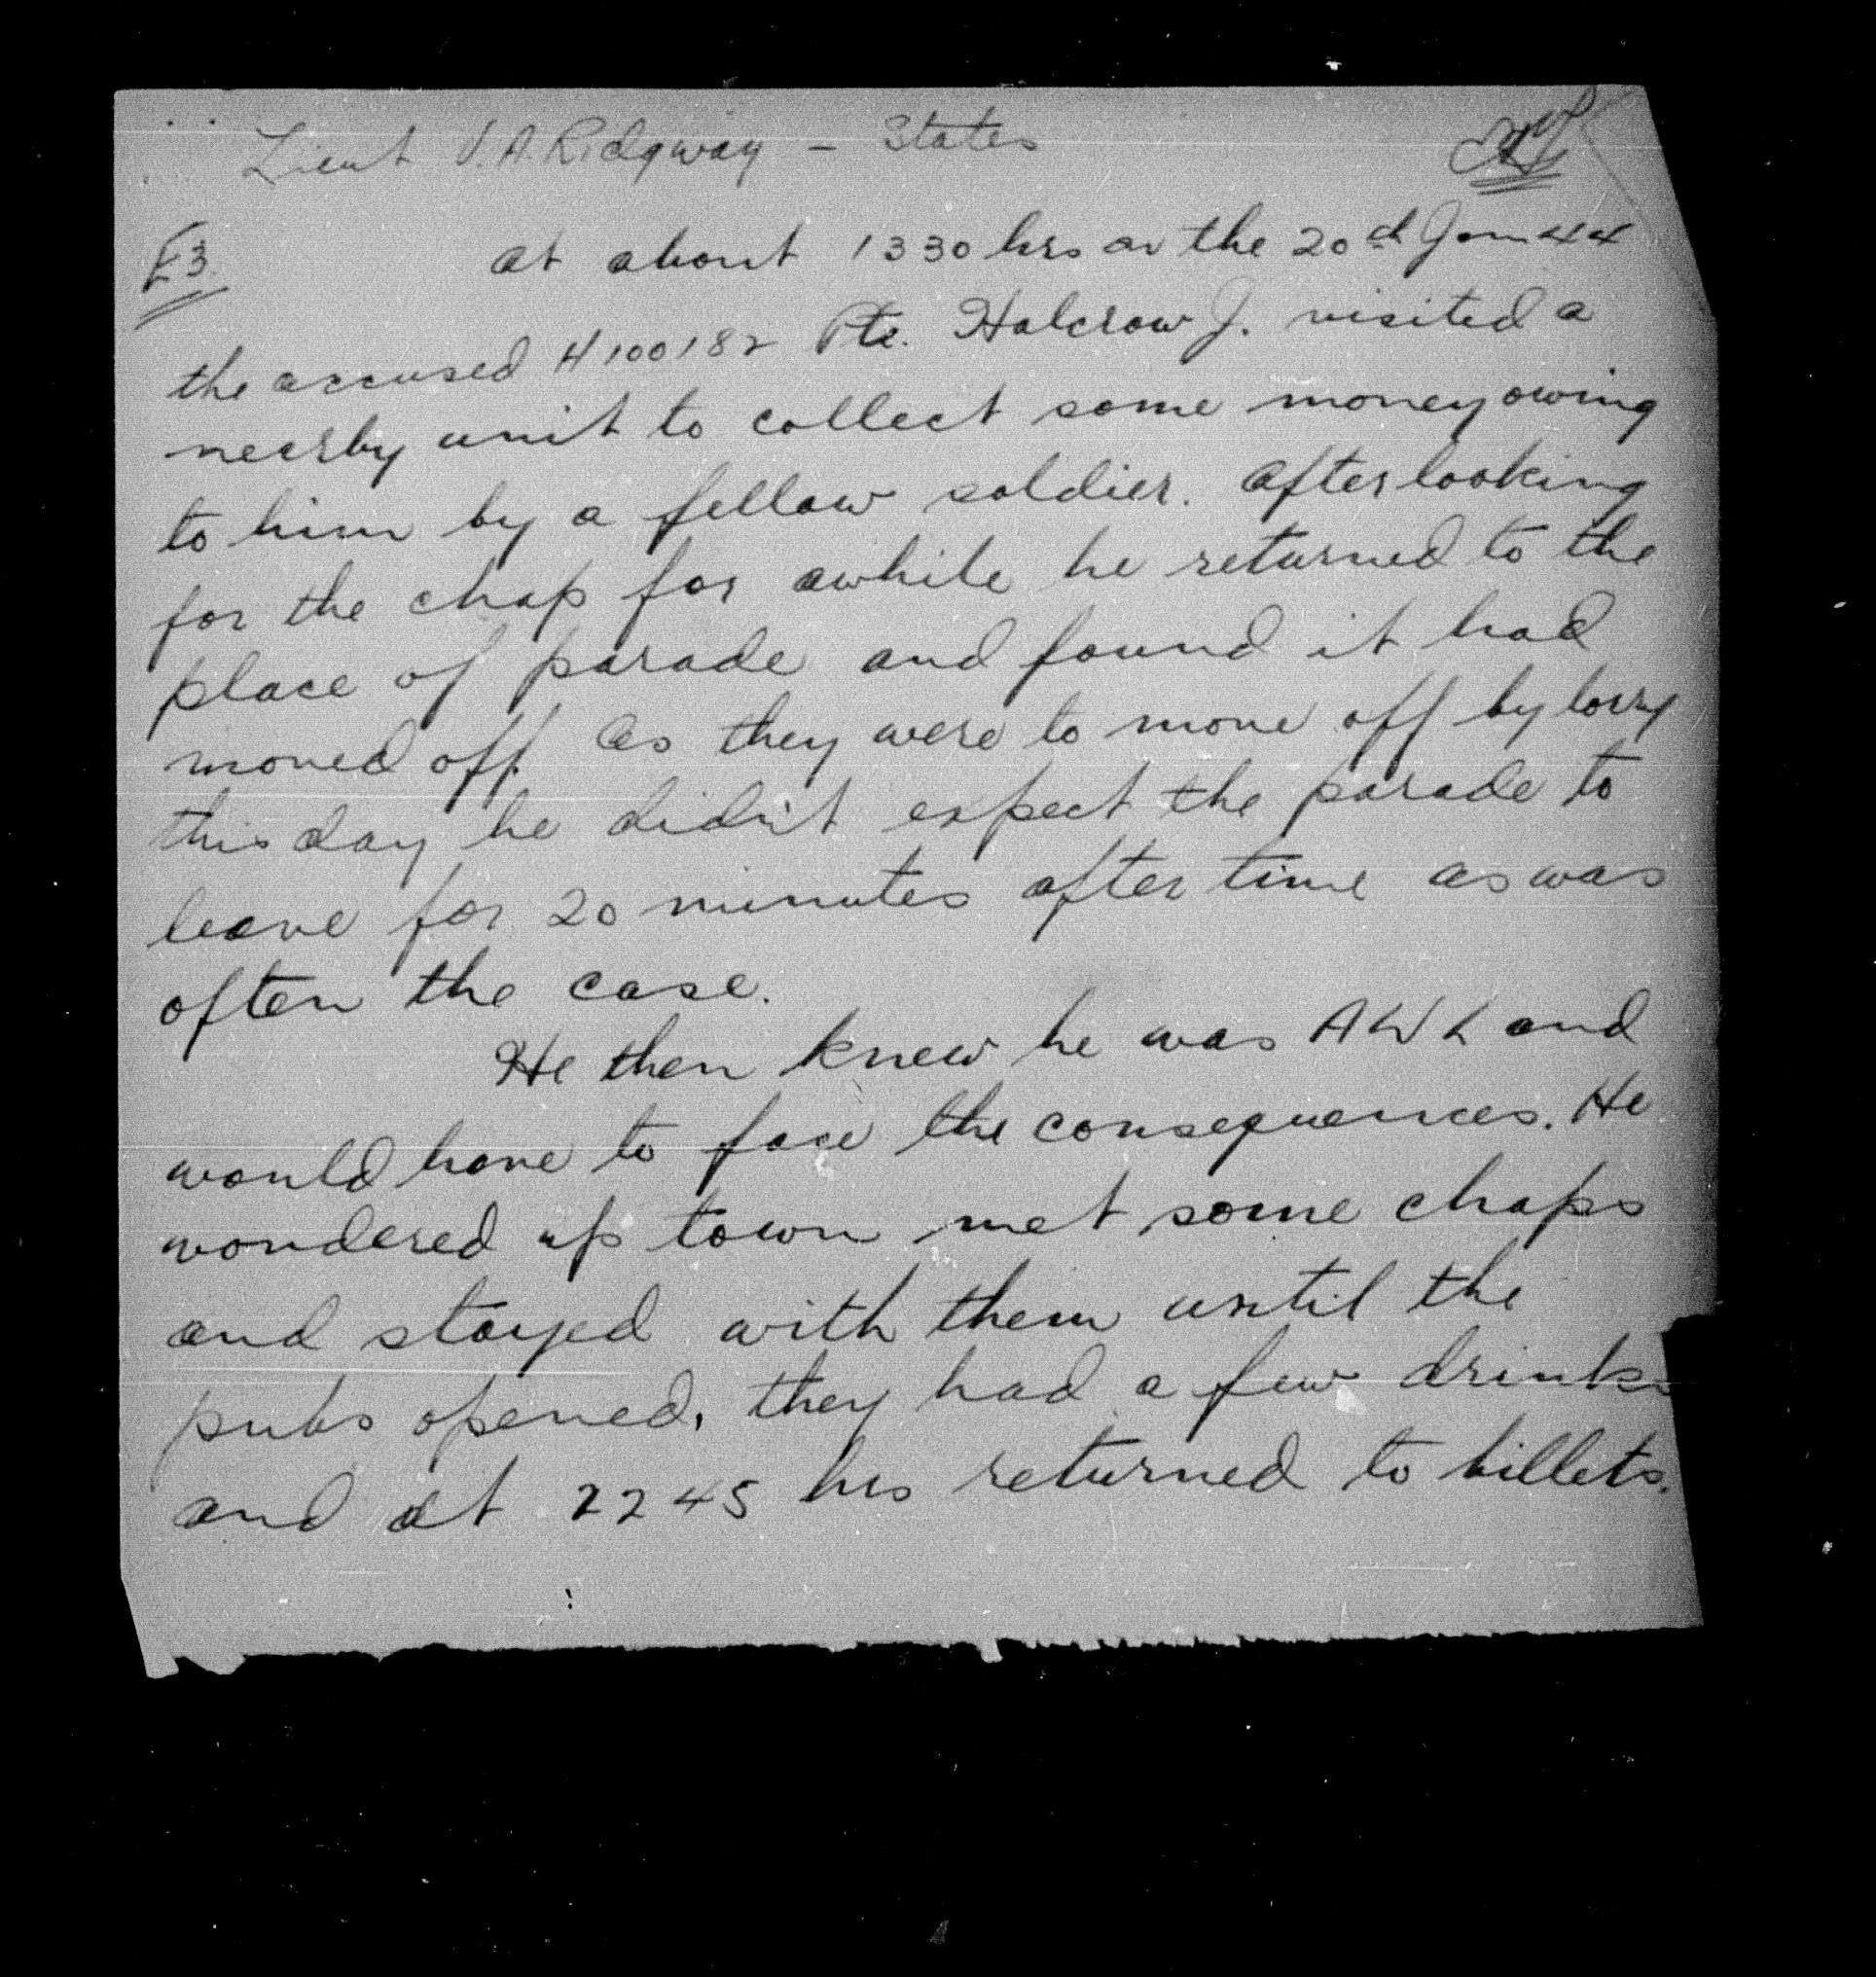 Lieut V.A. Ridgway – States
E3
At about 1330 hrs on the 20th Jan 44
the accused H100182 Pte. Halcrow J. visited a
nearby unit to collect some money owing
to him by a fellow soldier. After looking
for the chap for awhile he returned to the
place of parade and found it had
moved off. As they were to move off by lorry
this day he didn't expect the parade to
leave for 20 minutes after time as was
often the case.
He then knew he was AWL and
would have to face the consequences. He
wondered up town met some chaps
and stayed with them until the
pubs opened, they had a few drinks
and at 2245 hrs returned to billets.